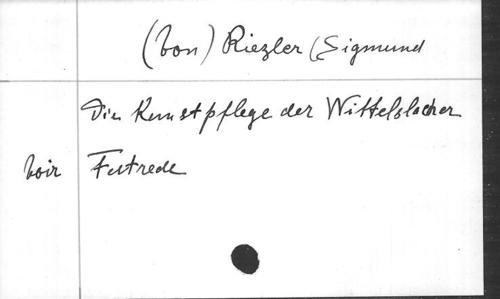 (von) Riezler (Sigmund
Die Kunstpflege der Wittelsbacher
voir Festrede